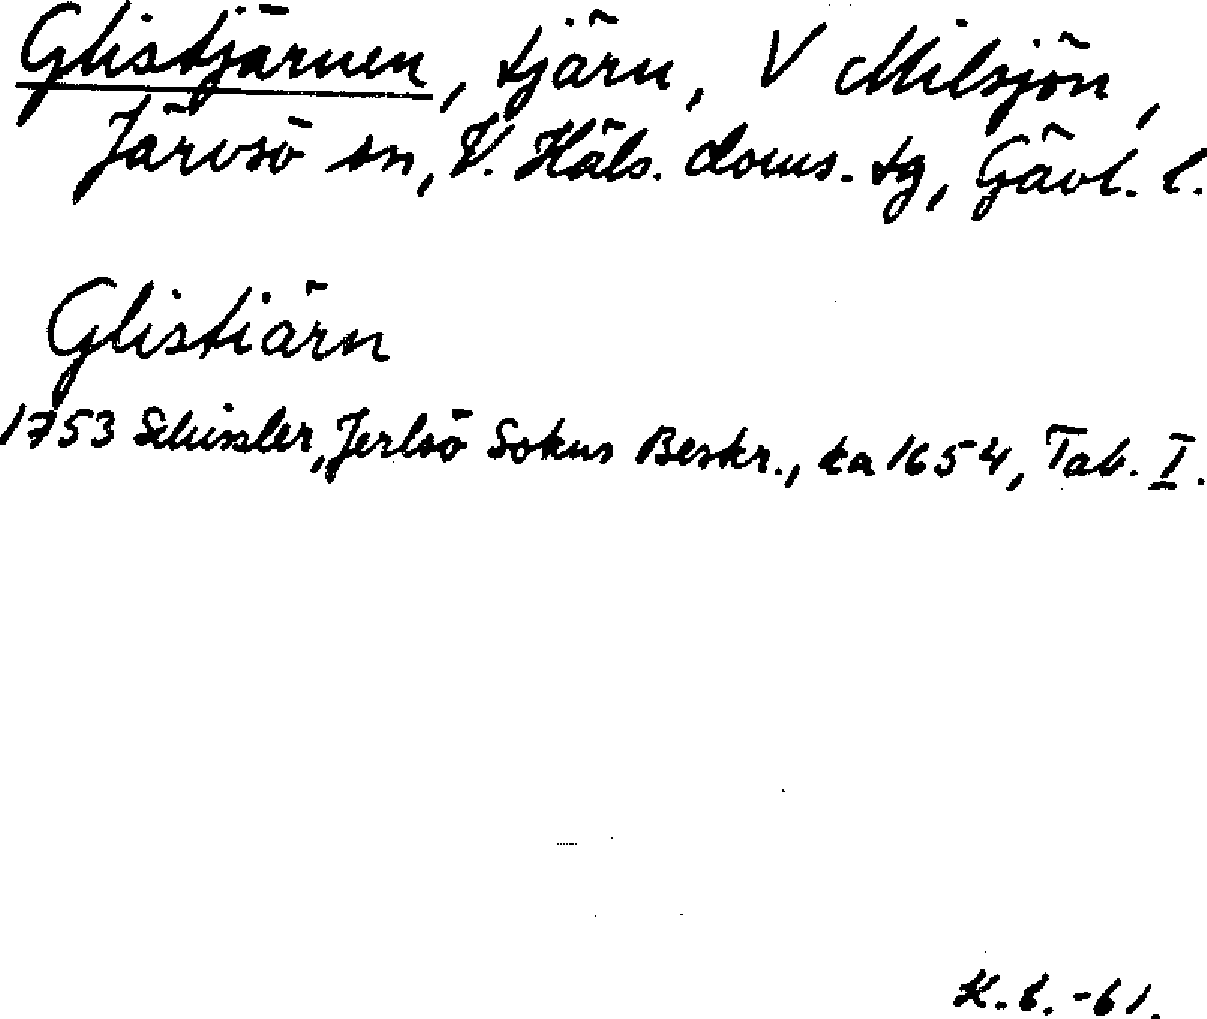 Glistjärnen, tjärn, V Milsjön,
Järvsö sn, V. Häls. doms. tg, Gävl. l.
Glistiärn
1753 Schissler, Jerlsö Sokns Beskr., ka 1654, Tab. I.
K. L. -61.